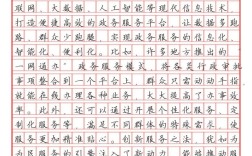 联网、大数据、人工智能等现代信息技术，
打造便捷高效的政务服务平台，让数据多跑
路，群众少跑腿，实现政务服务的信息化、
智能化、便利化。比如，许多地方推出的“
一网通办”政务服务模式，将各类行政审批
事项整合到一个平台上，群众只需动动手指
，就能轻松办理各种业务，大大提高了办事
效率。此外，还可以通过开展个性化服务、定
制化服务等，满足不同群体的特殊需求，使
服务更加精准贴心。创新服务方式，能够